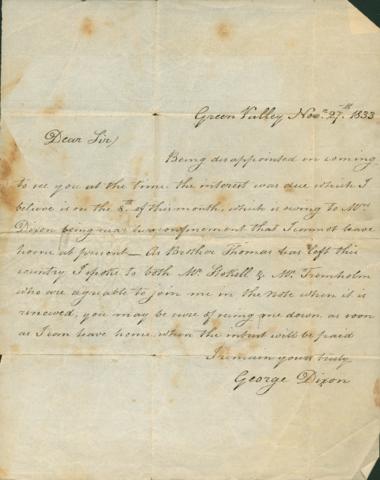 Green Valley Nov. 27th. 1833
Dear Sir,
Being disappointed in coming
to see you at the time the interest was due which I
believe is on the 8th of this month, which is owing to Mrs
Dixon being near her confinement that I cannot leave
home at present— As Brother Thomas has left this
country I spoke to both Mr & Mr Trenholm
who are agreable to join me in the Note when it is
renewed, you may be sure of me down as soon
as I can leave home when the will be paid
I remain yours truly
George Dixon